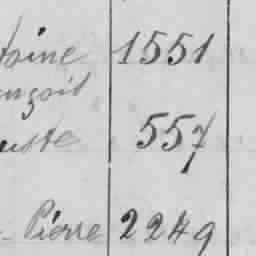 toine 1551
ançois
uste 557
- Pierre 2249